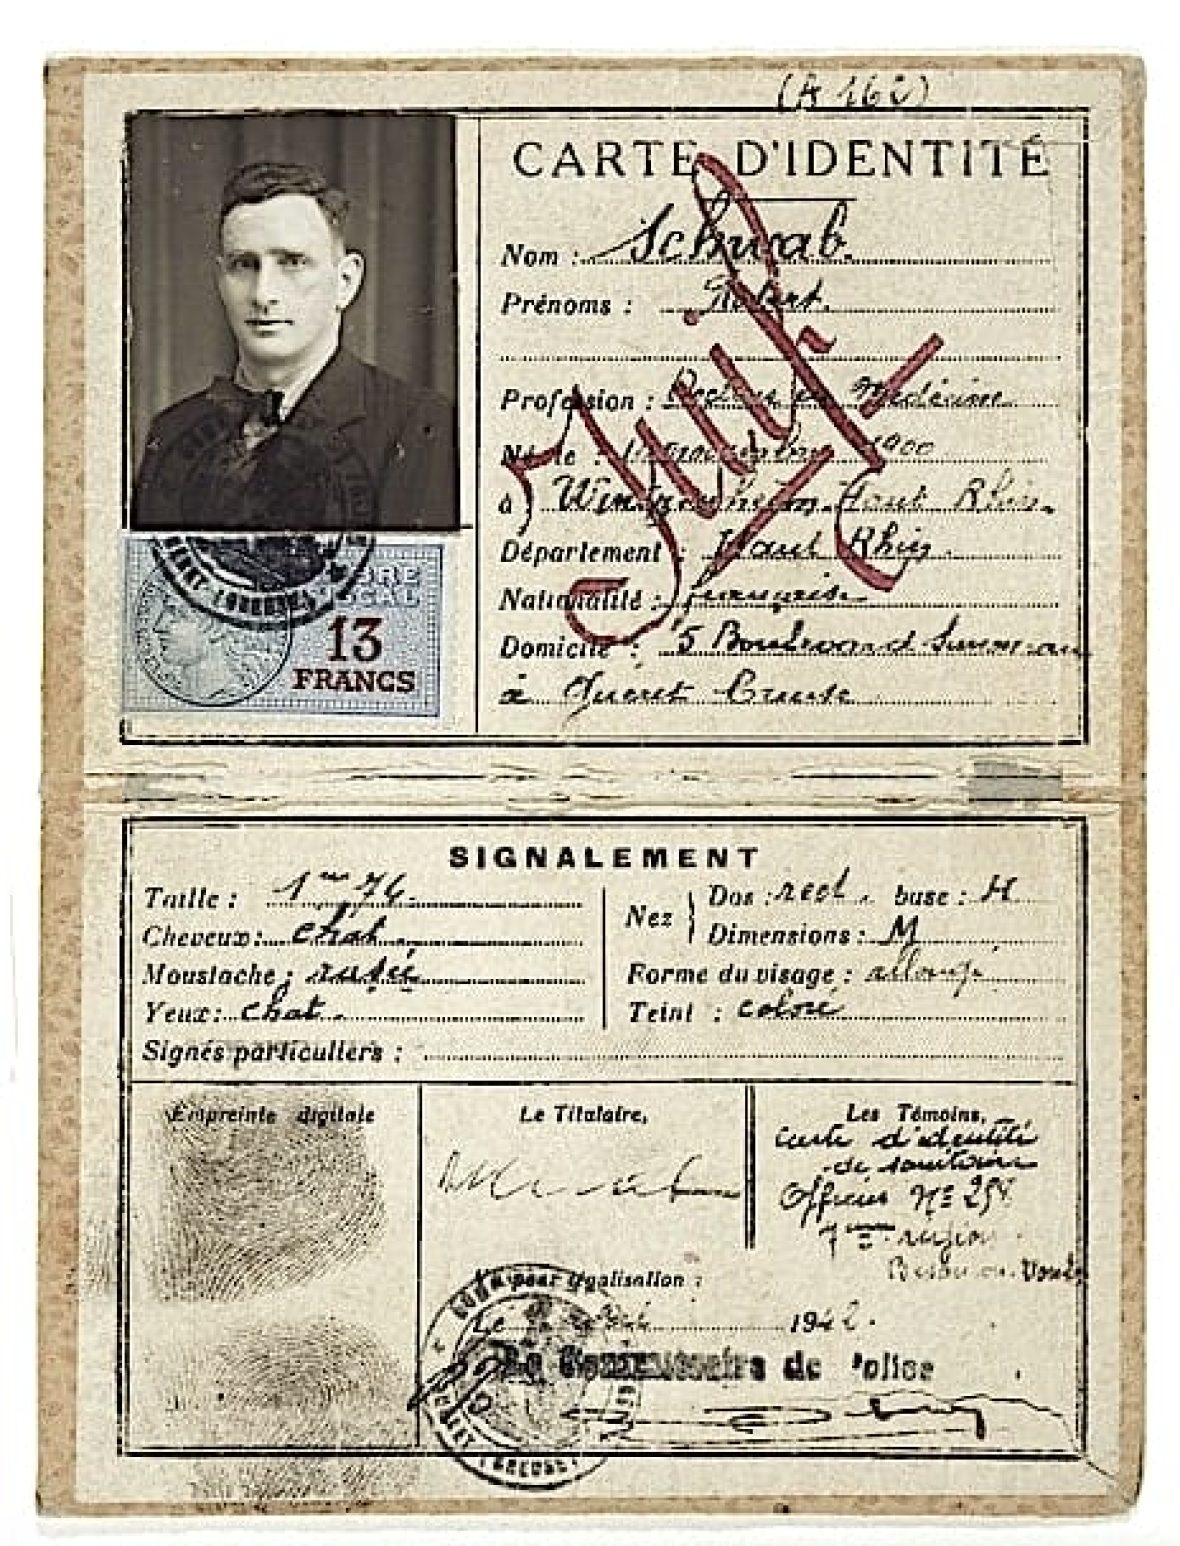 (A 162)
CARTE D'IDENTITÉ
Nom : Schwab.
Prénoms : Robert.
Juif
Profession : Docteur en Médecine
Né le : 1900
à Wintzenheim Haut Rhin.
Département : Haut Rhin.
Nationalité : française
Domicile : 5 Boulevard
à Guéret Creuse
13
FRANCS
SIGNALEMENT
Taille : 1m 74.
Cheveux : chat.
Moustache : rasée
Yeux : chat.
Nez
Dos : rect. base : H
Dimensions : M
Forme du visage : allongé
Teint : coloré
Signes particuliers :
Empreinte digitale
Le Titulaire,
Les Témoins,
Carte d'identité
de sanitaire
Officier No 258
7ème région
Vu pour légalisation :
Le 1942.
Le Commissaire de Police
(CREUSE)